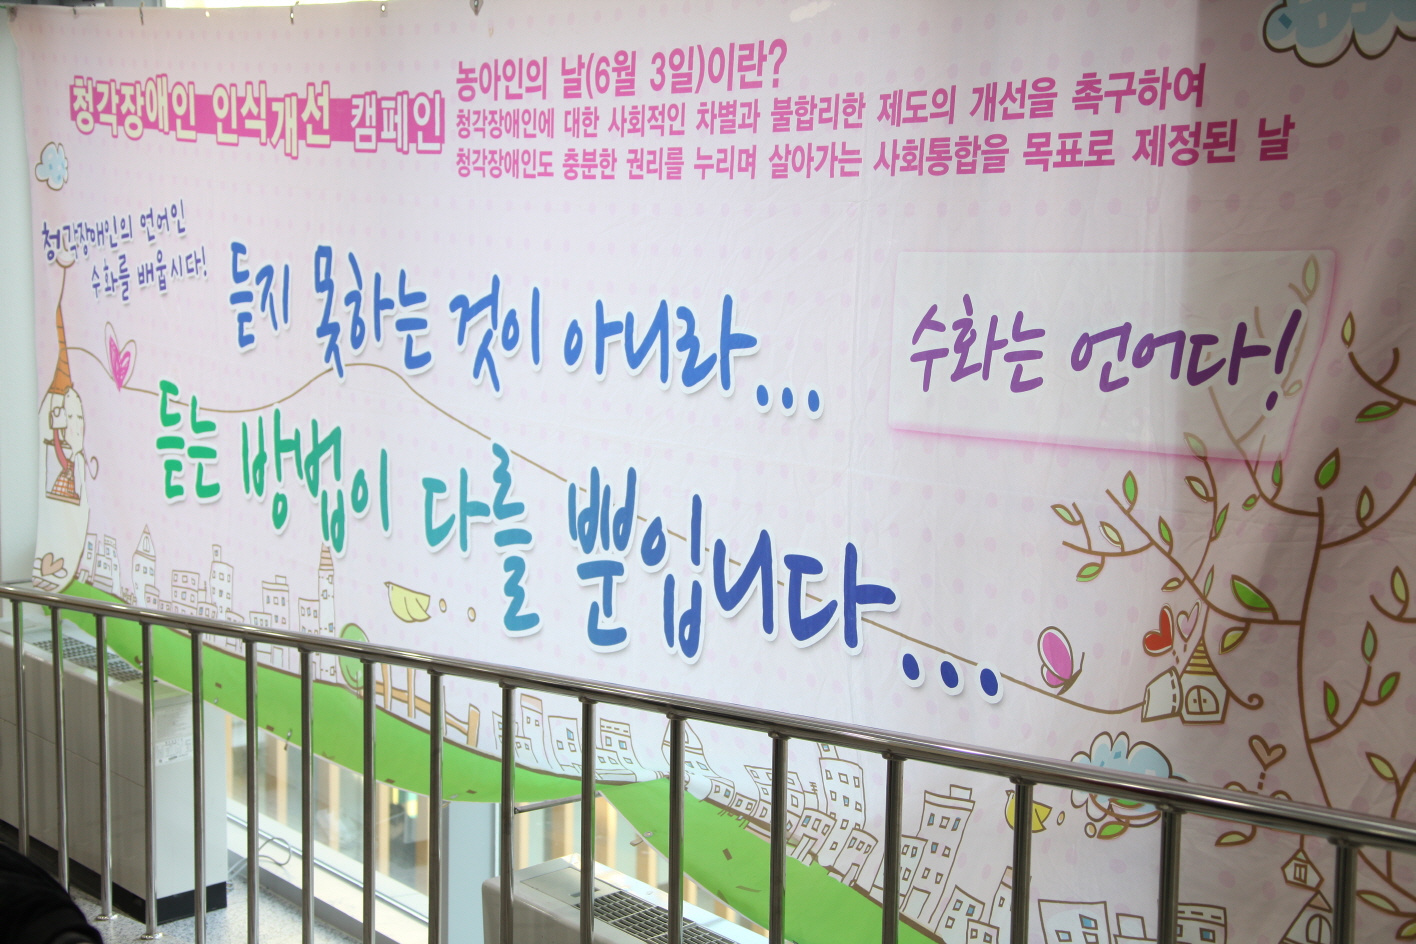 청각장애인 인식개선 캠페인
농아인의 날(6월 3일)이란?
청각장애인에 대한 사회적인 차별과 불합리한 제도의 개선을 촉구하여
청각장애인도 충분한 권리를 누리며 살아가는 사회통합을 목표로 제정된 날
청각장애인의 언어인
수화를 배웁시다!
듣지 못하는 것이 아니라...
수화는 언어다!
듣는 방법이 다를 뿐입니다...